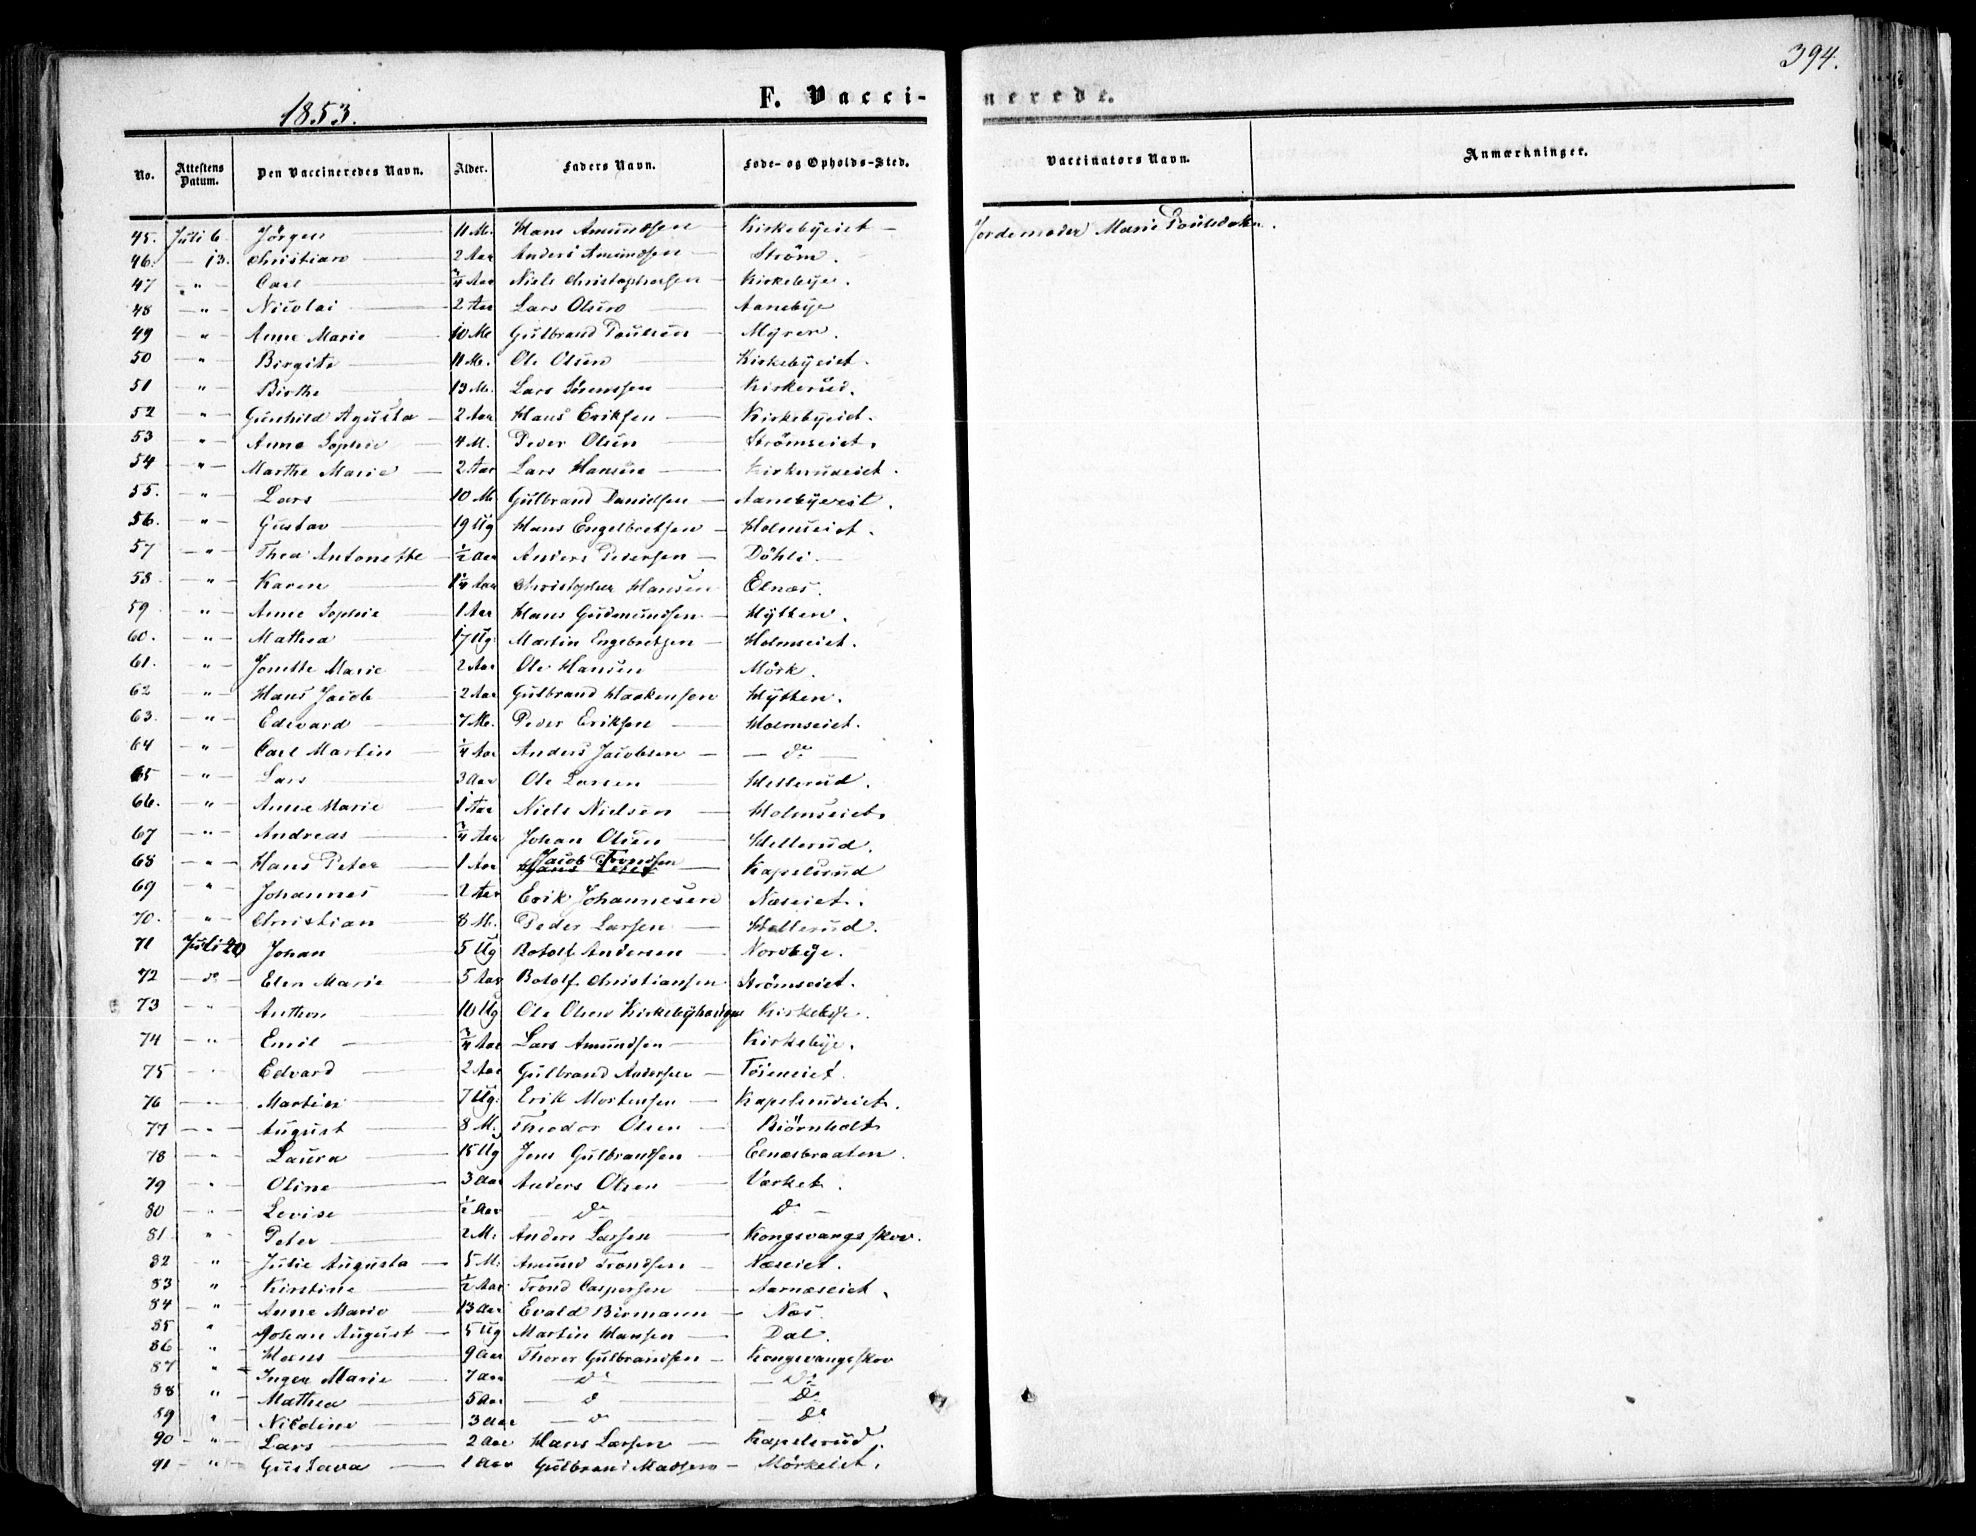 394.
1853.
F. Vaccinerede.
No. Attestens Datum. Den Vaccineredes Navn. Alder. Faders Navn. Føde- og Opholds-Sted. Vaccinators Navn. Anmærkninger.
45. Juli 6. Jörgen 11 M. Hans Amundsen Kirkebyeiet Jordemoder Marie
46. - 13. Christian 2 Aar Anders Amundsen Ström.
47 - " - Carl 3/4 Aar Niels Christophersen Kirkebye.
48 - " - Nicolai 2 Aar Lars Olsen Aanebye
49 - " - Anne Marie 10 M. Gulbrand Poulsen Myrer.
50 - " - Birgite 11 M. Ole Olsen Kirkebyeiet.
51 - " - Birthe 13 M. Lars Sörenssen Kirkerud.
52 - " - Gunhild Agusta 2 Aar Hans Eriksen Kirkebyeiet.
53 - " - Anne Sophie 4 M. Peder Olsen Strömseiet.
54 - " - Marthe Marie 2 Aar Lars Hansen Kirkerudeiet.
55. - " - Lars 10 M. Gulbrand Danielsen Aanebyeeiet.
56. - " - Gustav 19 Ug Hans Engelbretsen Holmseiet.
57 - " - Thea Antonette 1/2 Aar Anders Pedersen Döhli.
58 - " - Karen 1 1/4 Aar Christopher Hansen Elnæs.
59 - " - Anne Sophie 1 Aar Hans Gudmundsen Hytten.
60. - " - Mathea 17 Ug. Martin Engebretsen Holmseiet.
61. - " - Jonette Marie 2 Aar Ole Hansen Mörk.
62 - " - Hans Jacob 2 Aar Gulbrand Haakensen Hytten.
63. - " - Edevard 7 M. Peder Eriksen Holmseiet.
64 - " - Carl Martin 1/4 Aar Anders Jacobsen - do -
65 - " - Lars 3 Aar Ole Larsen Hellerud.
66. - " - Anne Marie 1 Aar Niels Nielsen Holmseiet.
67 - " - Andreas 3/4 Aar Johan Olsen Hellerud.
68 - " - Hans Peter 1 Aar Jacob Trondsen Kapelsrud
69 - " - Johannes 2 Aar Erik Johannesen Næseiet.
70. - " - Christian 8 M. Peder Larsen Hellerud.
71 Juli 20 Johan 5 Ug Botolf Andersen Nordbye.
72 - do - Elen Marie 5 Aar Botolf Christiansen Strömseiet.
73 - " - Anthon 10 Ug Ole Olsen Kirkebyhaugen Kirkebye.
74 - " - Emil 3/4 Aar Lars Amundsen Kirkebye.
75 - " - Edvard 2 Aar Gulbrand Andersen Töseneiet.
76 - " - Martin 7 Ug. Erik Mortensen Kapelsrudeiet.
77 - " - August 8 M. Theodor Olsen Biörnholt
78 - " - Laura 18 Ug Jens Gulbrandsen Elnæsbraaten.
79 - " - Oline 3 Aar Anders Olsen Værket.
80 - " - Levise 1/2 Aar - do - do -
81 " - Peter 2 M. Anders Larsen Kongsvangs skov.
82 " - Julie Augusta 5 M. Amund Trondsen Næseiet.
83 " - Kirstine 1/2 Aar Trond Caspersen Aarnæseiet.
84 - " - Anne Marie 13 Aar Evald Birmann Næs
85 " Johan August 5 Ug Martin Hansen Dal.
86 - " - Hans 9 Aar Thorer Gulbrandsen Kongsvangsskov
87 " - Inger Marie 7 Aar - do - - Do
88 " - Mathea 5 Aar - d - Do
89 " - Nicoline 3 Aar - d - - Do
90 - " - Lars 2 Aar Hans Larsen Kapelsrud.
91 - " - Gustava 1 Aar Gulbrand Madsen Mörkeiet.